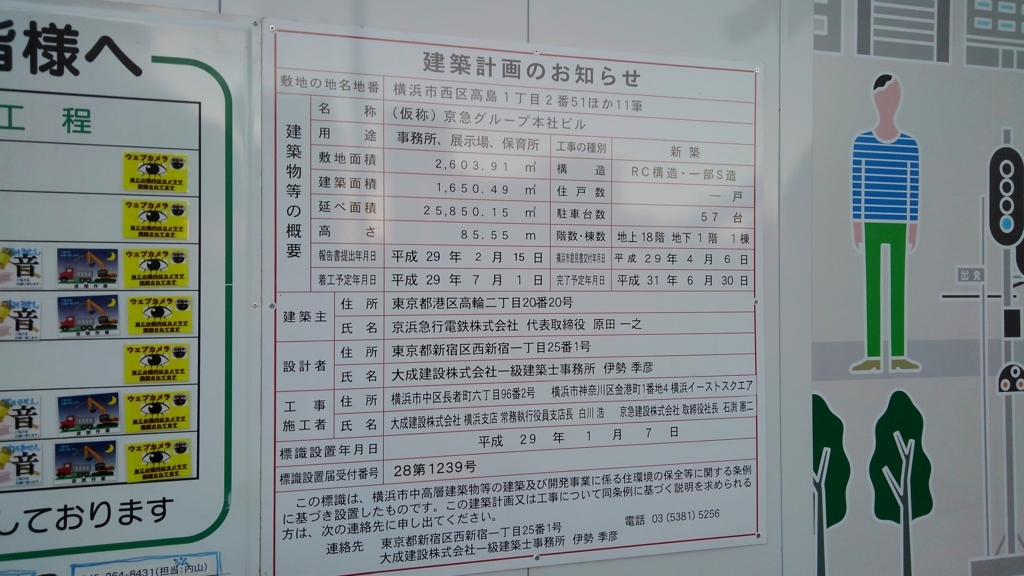 皆様へ
工 程
ウェブカメラ
音
しております
045-264-8431(担当:内山)
建築計画のお知らせ
敷地の地名地番 横浜市西区高島1丁目2番51ほか11筆
建築物等の概要
名 称 (仮称) 京急グループ本社ビル
用 途 事務所、展示場、保育所 工事の種別 新 築
敷地面積 2,603.91 ㎡ 構 造 RC構造・一部S造
建築面積 1,650.49 ㎡ 住 戸 数 ― 戸
延べ面積 25,850.15 ㎡ 駐車台数 57 台
高 さ 85.55 m 階数・棟数 地上18階 地下1階 1棟
報告書提出年月日 平成 29 年 2 月 15 日 横浜市意見書交付年月日 平成 29 年 4 月 6 日
着工予定年月日 平成 29 年 7 月 1 日 完了予定年月日 平成 31 年 6 月 30 日
建築主 住 所 東京都港区高輪二丁目20番20号
氏 名 京浜急行電鉄株式会社 代表取締役 原田 一之
設計者 住 所 東京都新宿区西新宿一丁目25番1号
氏 名 大成建設株式会社一級建築士事務所 伊勢 季彦
工 事 施工者 住 所 横浜市中区長者町六丁目96番2号 横浜市神奈川区金港町1番地4 横浜イーストスクエア
氏 名 大成建設株式会社 横浜支店 常務執行役員支店長 白川 浩 京急建設株式会社 取締役社長 石渕 憲二
標識設置年月日 平成 29 年 1 月 7 日
標識設置届受付番号 28第1239号
この標識は、横浜市中高層建築物等の建築及び開発事業に係る住環境の保全等に関する条例
に基づき設置したものです。この建築計画又は工事について同条例に基づく説明を求められる
方は、次の連絡先に申し出てください。
連絡先 東京都新宿区西新宿一丁目25番1号 電話 03 (5381) 5256
大成建設株式会社一級建築士事務所 伊勢 季彦